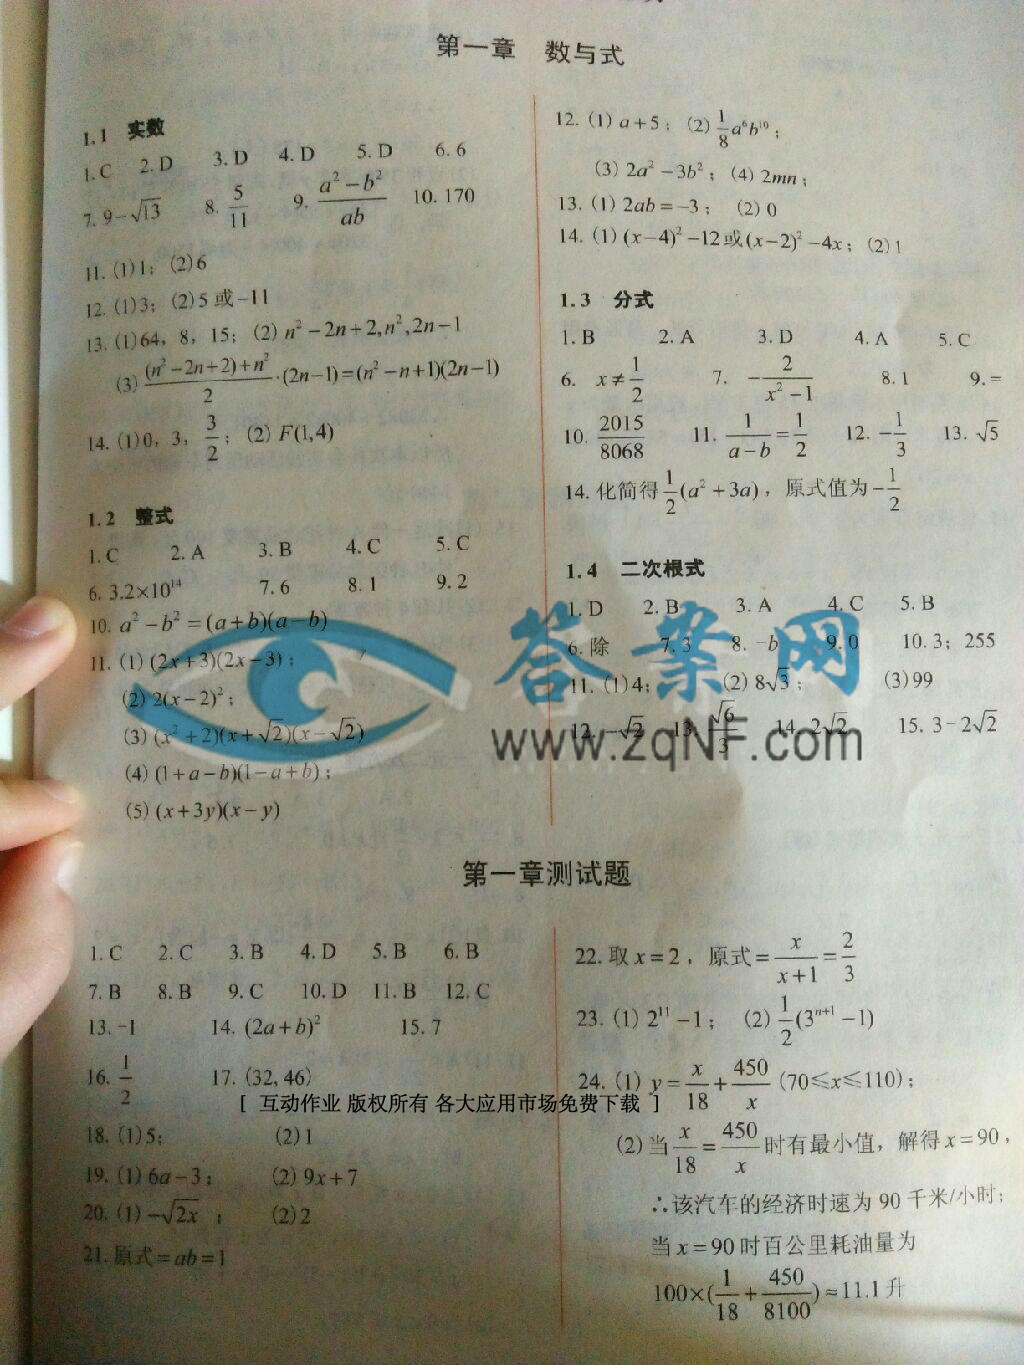 第一章 数与式
1.1 实数
1.C 2.D 3.D 4.D 5.D 6.6
7. 9-√13 8. 5/11 9. (a²-b²)/ab 10.170
11.(1)1;(2)6
12.(1)3;(2)5或-11
13.(1)64,8,15;(2) n²-2n+2,n²,2n-1
(3) ((n²-2n+2)+n²)/2·(2n-1)=(n²-n+1)(2n-1)
14.(1)0,3,3/2;(2) F(1,4)
1.2 整式
1.C 2.A 3.B 4.C 5.C
6. 3.2×10¹⁴ 7.6 8.1 9.2
10. a²-b²=(a+b)(a-b)
11.(1)(2x+3)(2x-3);
(2) 2(x-2)²;
(3)(x²+2)(x+√2)(x-√2)
(4)(1+a-b)(1-a+b);
(5)(x+3y)(x-y)
12.(1) a+5;(2) 1/8 a⁶b¹⁰;
(3) 2a²-3b²;(4) 2mn;
13.(1) 2ab=-3;(2) 0
14.(1)(x-4)²-12或(x-2)²-4x;(2)1
1.3 分式
1.B 2.A 3.D 4.A 5.C
6. x≠1/2 7. -2/(x²-1) 8.1 9.=
10. 2015/8068 11. 1/(a-b)=1/2 12. -1/3 13. √5
14.化简得1/2(a²+3a),原式值为-1/2
1.4 二次根式
1.D 2.B 3.A 4.C 5.B
6.除 7.3 8.-b 9.0 10.3;255
11.(1)4; (2) 8√3; (3)99
12. -√2 13. √6/3 14. 2√2 15. 3-2√2
答案网
www.zqNF.com
第一章测试题
1.C 2.C 3.B 4.D 5.B 6.B
7.B 8.B 9.C 10.D 11.B 12.C
13.-1 14. (2a+b)² 15.7
16. 1/2 17.(32,46)
[ 互动作业 版权所有 各大应用市场免费下载 ]
18.(1)5; (2)1
19.(1) 6a-3; (2) 9x+7
20.(1) -√2x; (2)2
21.原式=ab=1
22.取x=2,原式=x/(x+1)=2/3
23.(1) 2¹¹-1;(2) 1/2(3ⁿ⁺¹-1)
24.(1) y=x/18+450/x (70≤x≤110);
(2)当x/18=450/x时有最小值,解得x=90,
∴该汽车的经济时速为90千米/小时;
当x=90时百公里耗油量为
100×(1/18+450/8100)≈11.1升